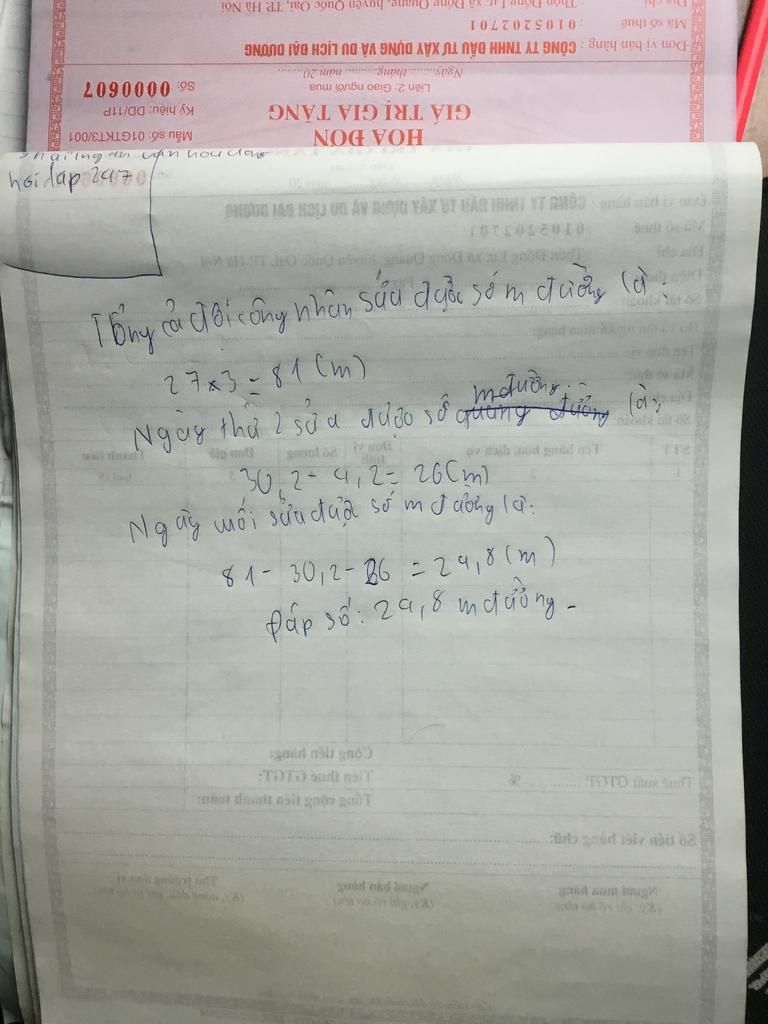 Địa chỉ : Thôn Đông Lư, xã Đồng Quang, huyện Quốc Oai, TP. Hà Nội
Mã số thuế : 0105202701
Đơn vị bán hàng : CÔNG TY TNHH ĐẦU TƯ XÂY DỰNG VÀ DU LỊCH ĐẠI DƯƠNG
Ngày.........tháng.........năm 20.........
Liên 2: Giao người mua
Số: 0000607
GIÁ TRỊ GIA TĂNG
Ký hiệu: DD/11P
HOA ĐƠN
Mẫu số: 01GTKT3/001
hỏi đáp 247
Đơn vị bán hàng : CÔNG TY TNHH ĐẦU TƯ XÂY DỰNG VÀ DU LỊCH ĐẠI DƯƠNG
Mã số thuế : 0105202701
Địa chỉ : Thôn Đông Lư, xã Đồng Quang, huyện Quốc Oai, TP. Hà Nội
Số tài khoản
Tổng cả đội công nhân sửa được số m đường là:
27 x 3 = 81 (m)
m đường
Ngày thứ 2 sửa được số quãng đường là:
STT Tên hàng hóa, dịch vụ Đơn vị tính Số lượng Đơn giá Thành tiền
30,2 - 4,2 = 26 (m)
Ngày cuối sửa được số m đường là:
81 - 30,2 - 26 = 24,8 (m)
Đáp số: 24,8 m đường.
Cộng tiền hàng:
Thuế suất GTGT: ............ % Tiền thuế GTGT:
Tổng cộng tiền thanh toán:
Số tiền viết bằng chữ:
Người mua hàng Người bán hàng Thủ trưởng đơn vị
(Ký, ghi rõ họ tên) (Ký, ghi rõ họ tên)